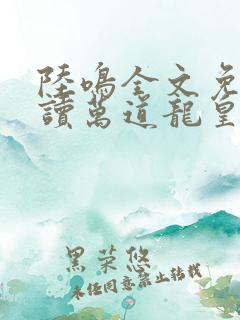 陸鳴全文免
讀萬道龍皇
黑菜悠
未任同意禁止轉載